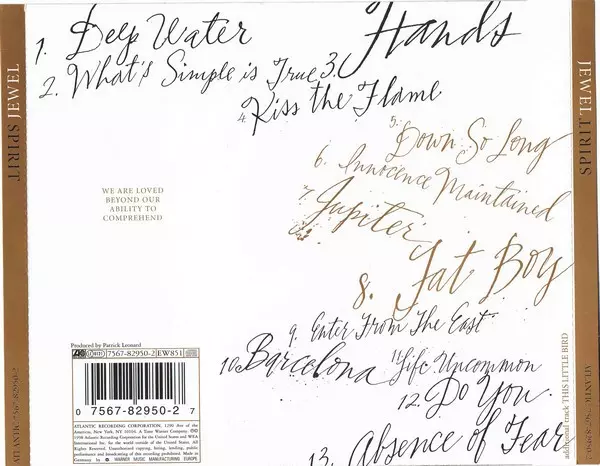 1. Deep Water
2. What's Simple is True
3. Hands
4. Kiss the Flame
5. Down So Long
6. Innocence Maintained
7. Jupiter
8. Fat Boy
9. Enter From The East
10. Barcelona
11. Life Uncommon
12. Do You
13. Absence of Fear
WE ARE LOVED
BEYOND OUR
ABILITY TO
COMPREHEND
SPIRIT JEWEL
ATLANTIC 7567-82950-2
JEWEL SPIRIT
additional track THIS LITTLE BIRD
ATLANTIC 7567-82950-2
Produced by Patrick Leonard
7567-82950-2 EW851
0 7567-82950-2 7
ATLANTIC RECORDING CORPORATION, 1290 Ave of the
Americas, New York, NY 10104. A Time Warner Company.
1998 Atlantic Recording Corporation for the United States and WEA
International Inc. for the world outside of the United States. All
Rights Reserved. Unauthorized copying, hiring, lending, public
performance and broadcasting of this recording prohibited. Made in
Germany by WARNER MUSIC MANUFACTURING EUROPE